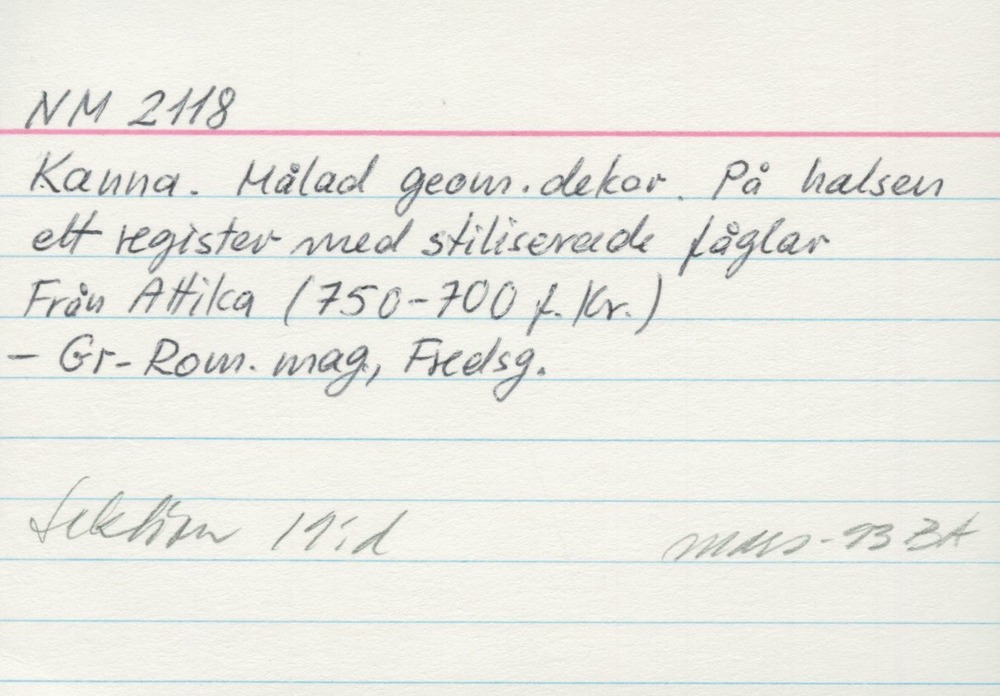 NM 2118
Kanna. Målad geom. dekor. På halsen
ett register med stiliserade fåglar
Från Attika (750-700 f. Kr.)
- Gr-Rom. mag, Fredsg.
Sektion 19:d
mars-93 BA